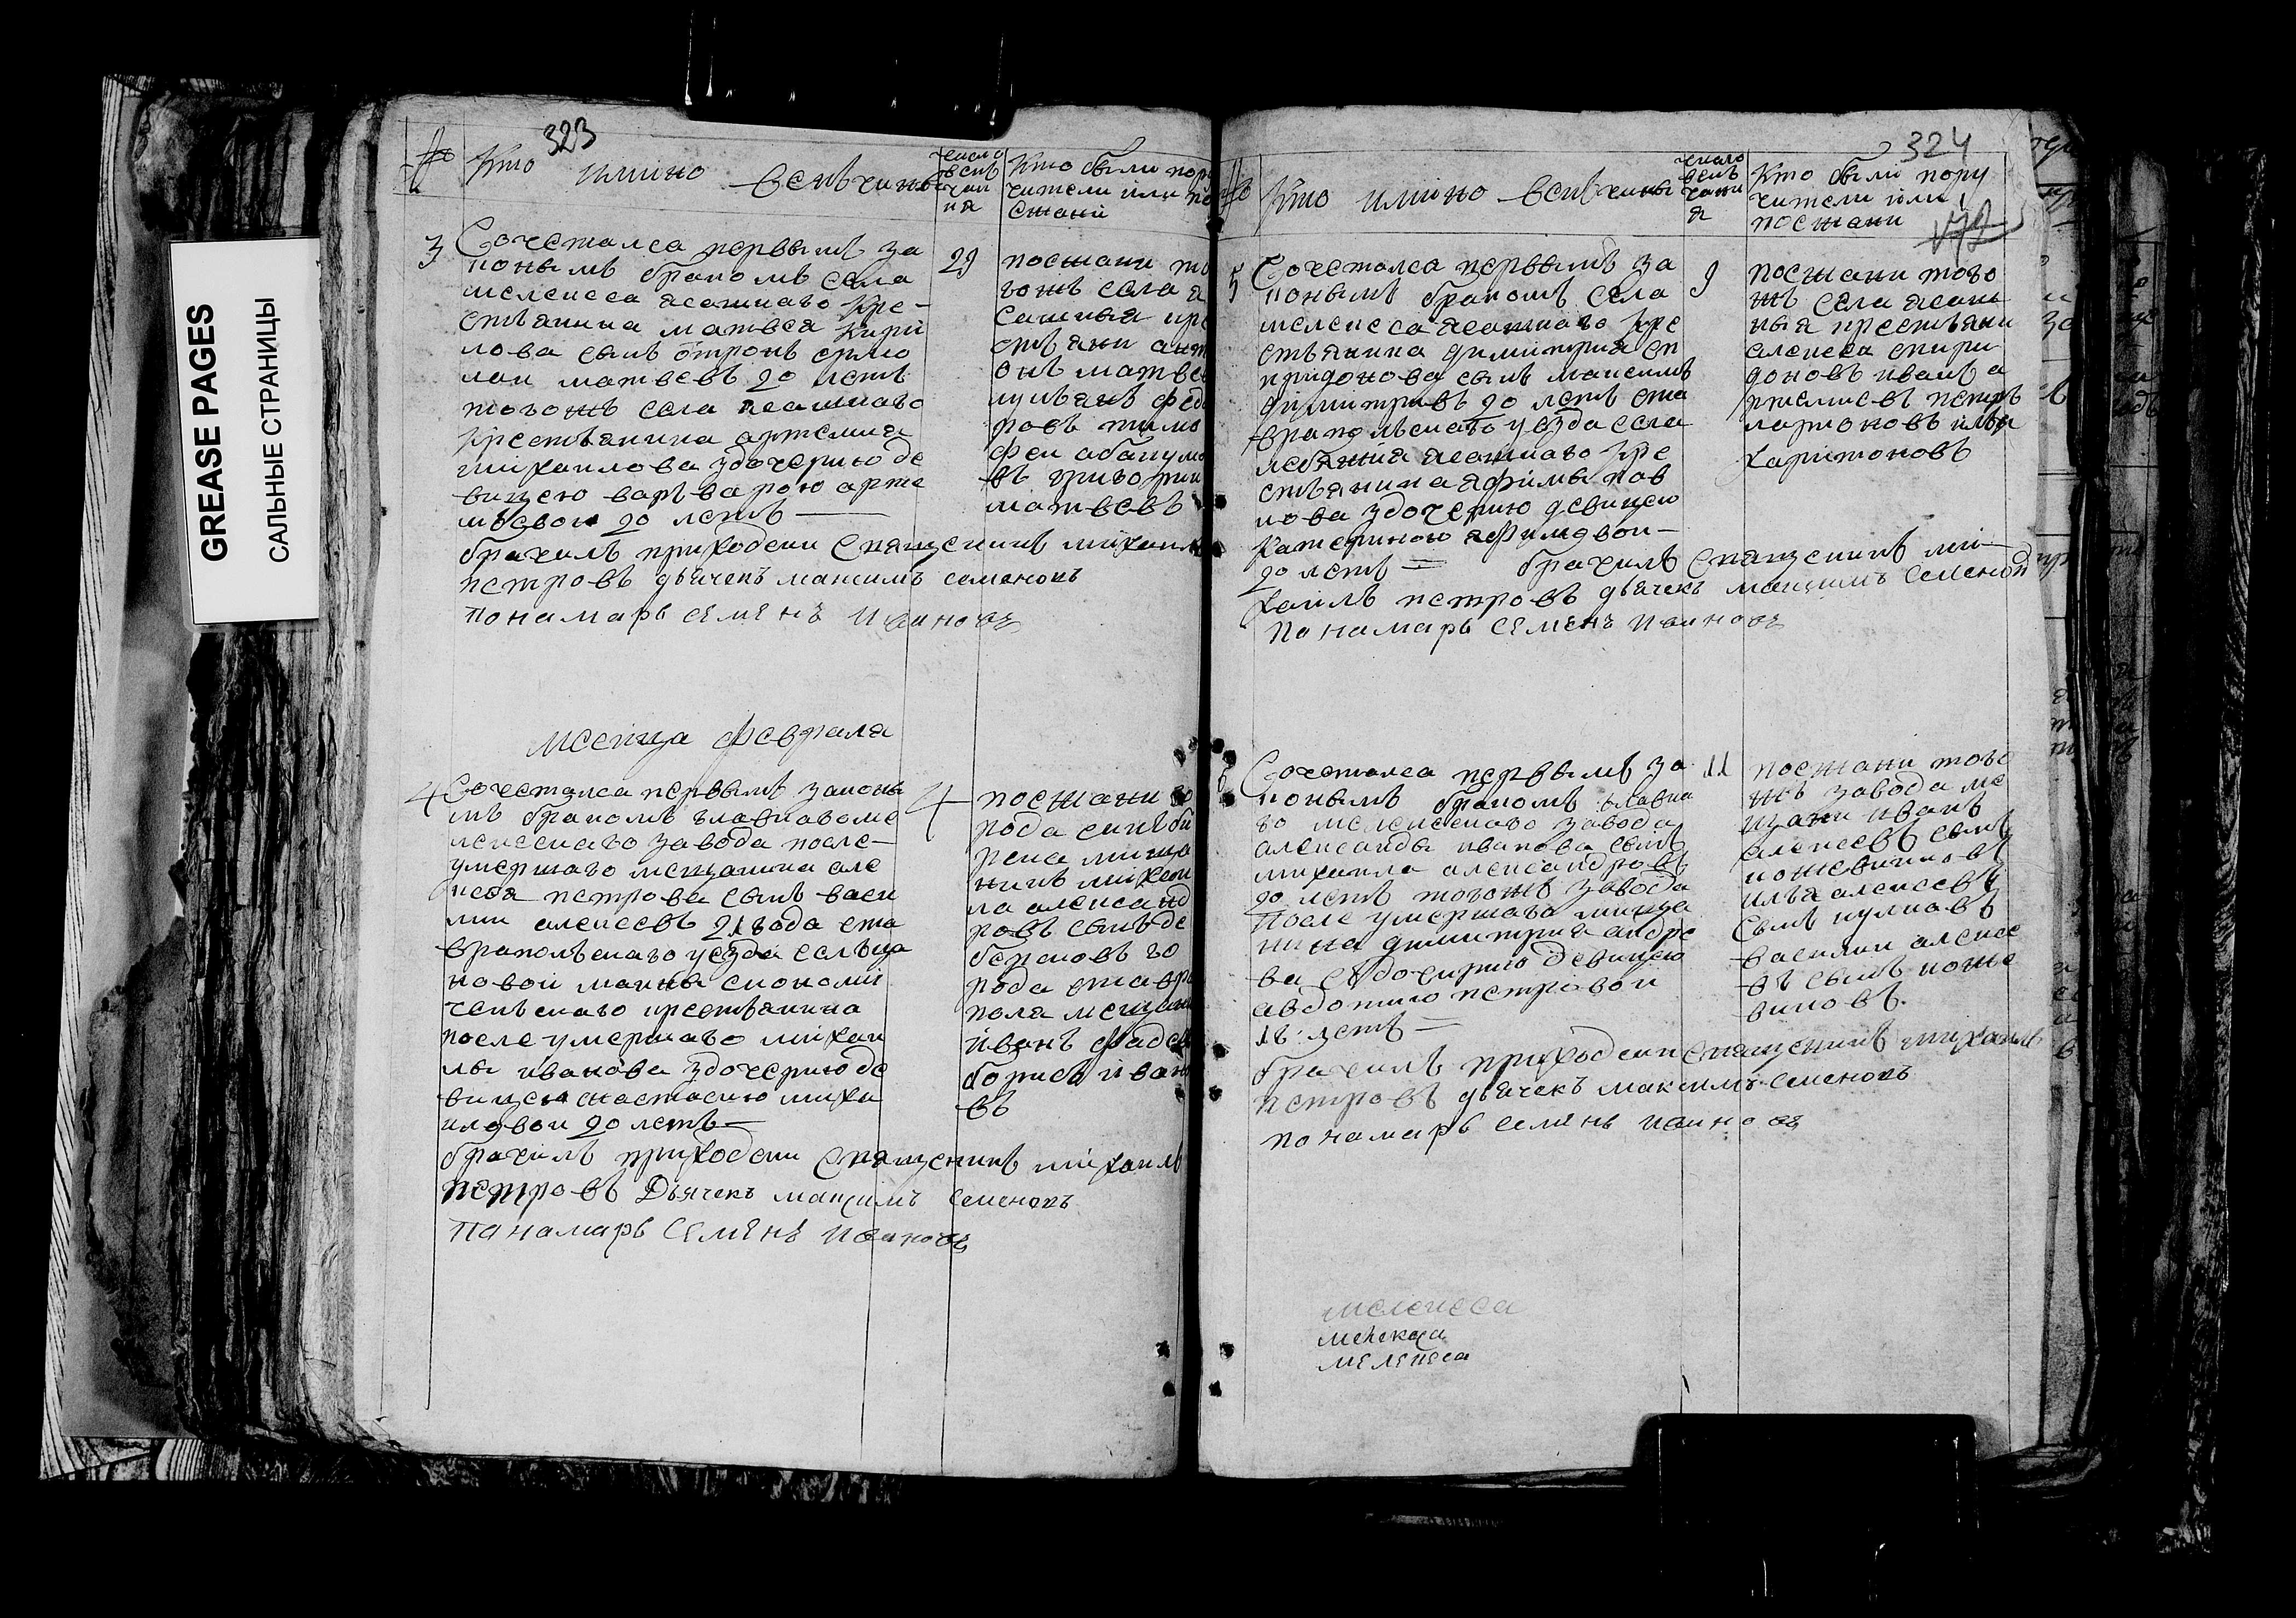 GREASE PAGES
САЛЬНЫЕ СТРАНИЦЫ
323
№
Кто имяно венчины
число
венч
чан
ия
Кто были пору
чители или по
сжани
3
Сочетался первымъ за
конымъ бракомъ села
мелекеса ясашнаго кре-
стьянина матвея кирил
лова сынъ отрокъ ермо
лаи матвеевъ 20 летъ
тогожъ села ясашнаго
крестьянина артемия
михаилова здочерию де
вицею варъварою арте
мьевои 20 летъ —
29
посжани то
гожъ села я
сашныя кре
стьяни ант
онъ матвее
лукьянъ федо
ровъ тимо
феи абакумо
въ григории
матвеевъ
брачилъ приходски священикъ михаилъ
петровъ дьячекъ максимъ семеновъ
понамарь семенъ ивановъ
месяца февраля
4
Сочетался первымъ законы
мъ бракомъ главнаго ме
лекескаго завода после-
умершаго мещанина але
ксея петрова сынъ васи
лии алексеевъ 21 года ста
врапольскаго уезда сельца
новои маины економи
ческаго крестьянина
после умершаго михаи
лы иванова здочерию де
вицею настасию миха
иловои 20 летъ —
4
посжани го
рода синъби
рска мища
нинъ михаи
ла александ
ровъ сынъ де
беряковъ го
рода ставро
поля мещани
иванъ фадее
борисъ ивано
въ
брачилъ приходски священикъ михаилъ
петровъ Дьячекъ максимъ семеновъ
панамарь семенъ ивановъ
324
№
Кто имяно венчины
число
венъ
чани
я
Кто были пору
чители или
посжани
172
5
Сочетался первымъ за
конымъ бракомъ села
мелекеса ясашнаго кре
стьянина димитрия сп
иридонова сынъ максимъ
димитривъ 20 летъ ста
врапольскаго уезда села
лебяжия ясашнаго кре
стьянина яфимы пав
лова здочерию девицею
катериною яфимовои —
20 летъ =
9
посжани того
жъ села ясаш
ныя крестьяни
алексеи спири
доновъ иванъ а
ртемиевъ петръ
лариоковъ илья
харитоновъ
брачилъ священикъ ми-
хаилъ петровъ дьячекъ максимъ семеновъ
Панамарь семенъ ивановъ
Сочетался первымъ за
конымъ бракомъ главна
го мелекескаго завода
александы иванова сынъ
михаила александровъ
20 летъ тогожъ завода
после умершаго мища
нина димитрия андре
ва съ дочирию девицею
авдотию петровои
18 летъ —
11
посжани того
жъ завода ме
щани иванъ
алексеевъ сынъ
кожевниковъ
илья алексеевъ
сынъ куликовъ
василии алексее
въ сынъ коже
виковъ.
брачилъ приходски священикъ михаилъ
петровъ дьячекъ максимъ семеновъ
понамарь семенъ ивановъ
мелекеса
мелекеса
мелекеса